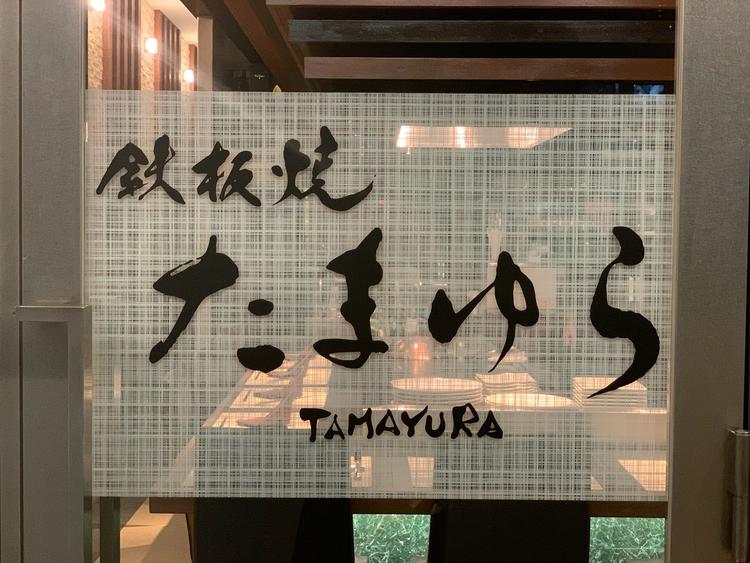 鉄板焼
たまゆら
TAMAYURA